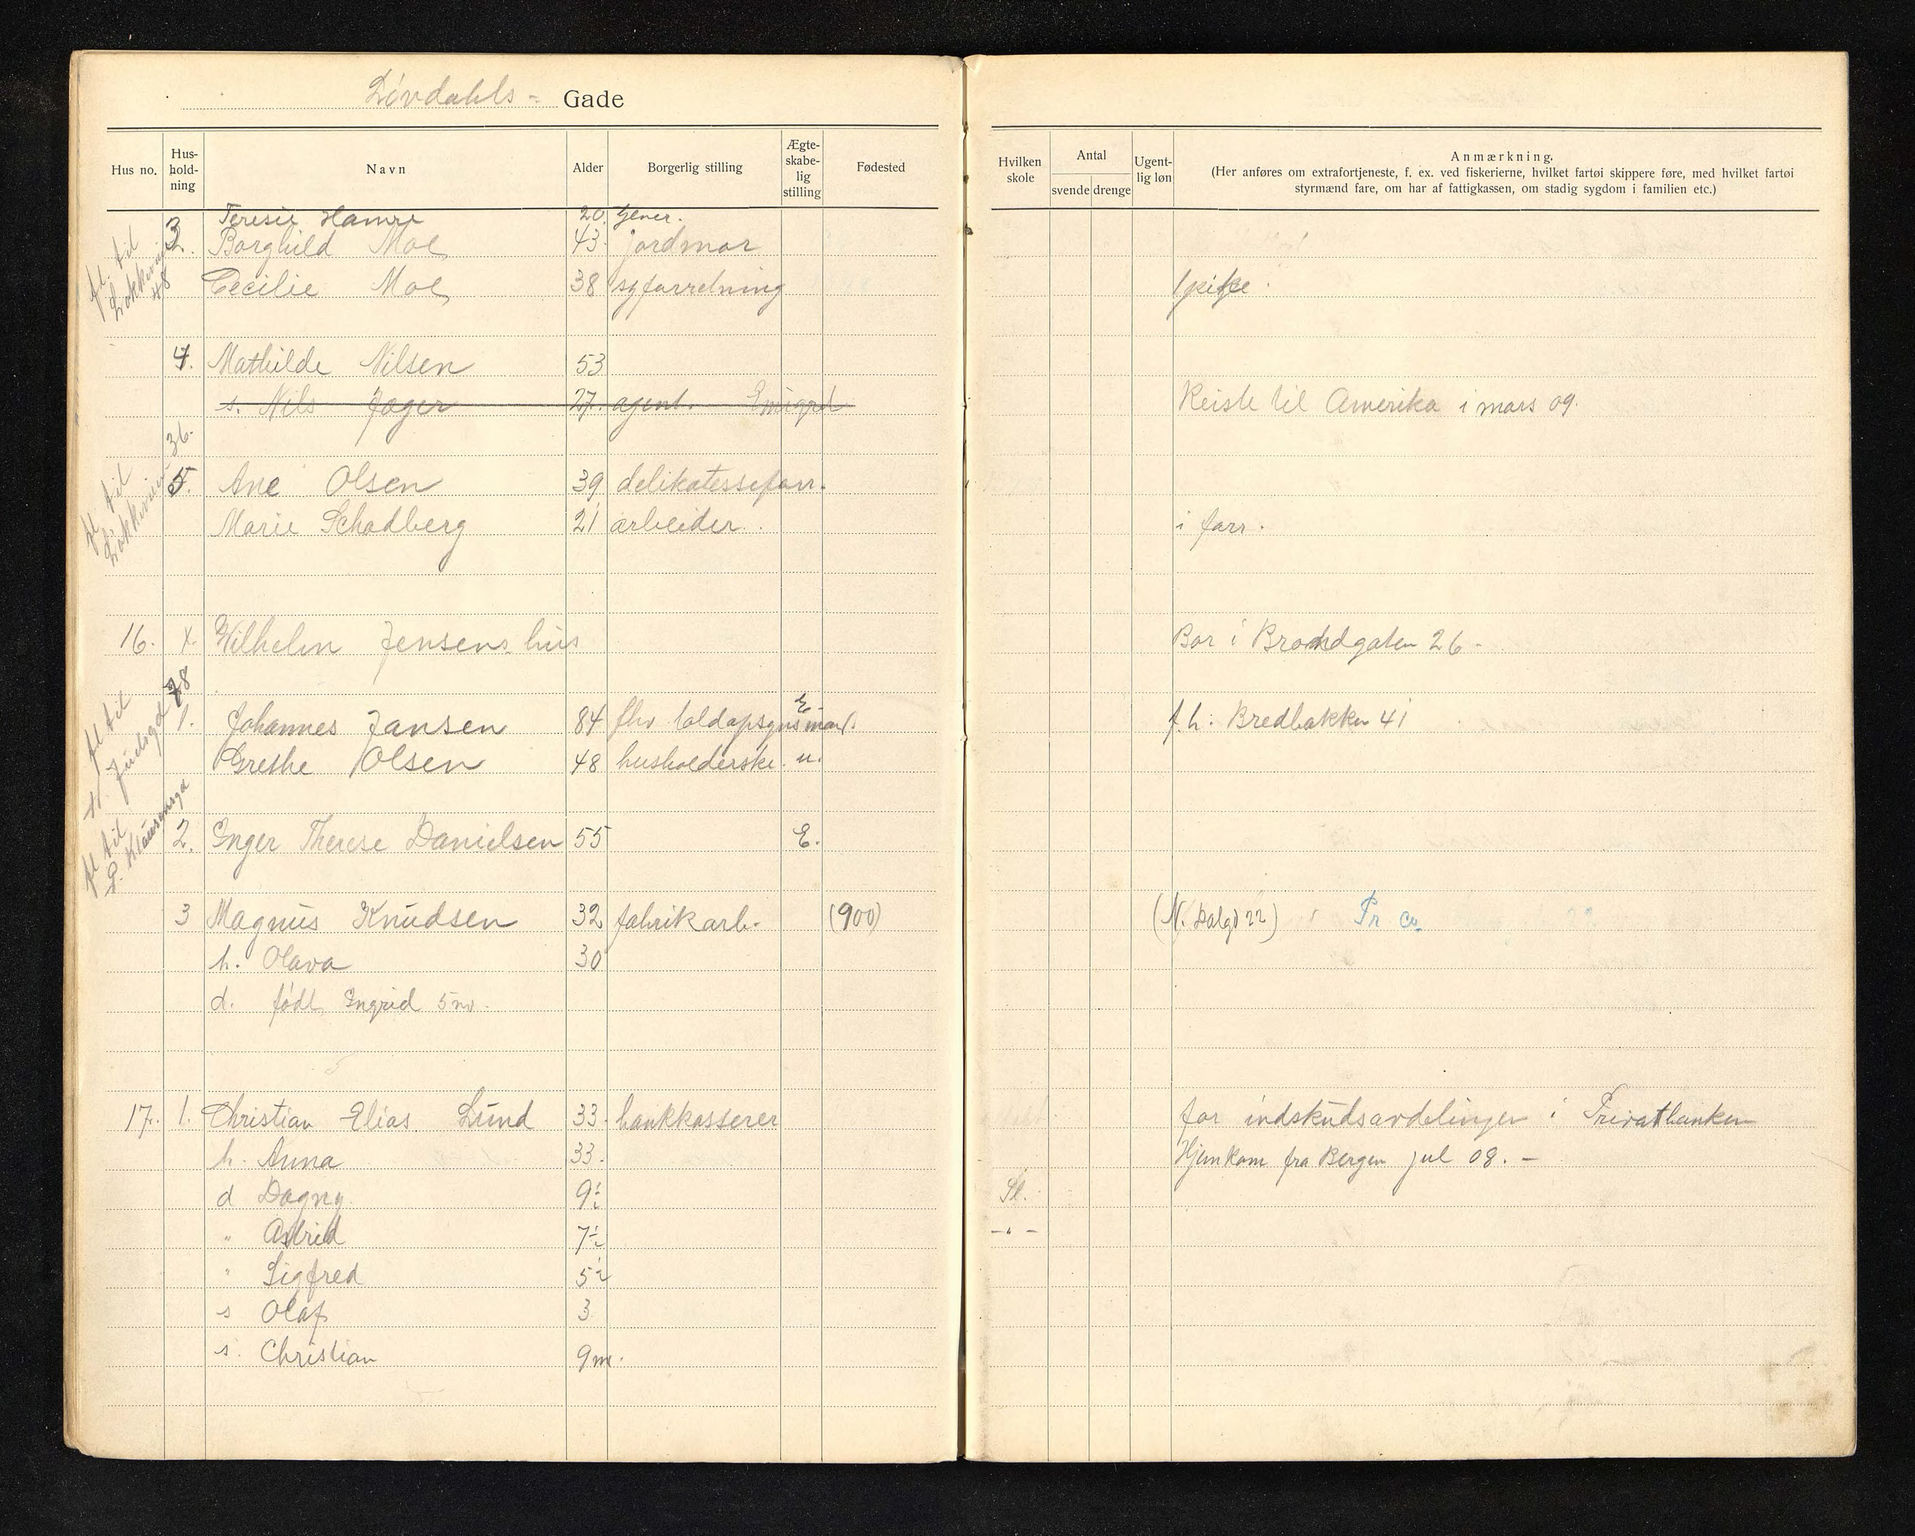 Løvdahls - Gade
Hus no. Hus-hold-ning Navn Alder Borgerlig stilling Ægte-skabe-lig stilling Fødested Hvilken skole Antal svende drenge Ugent-lig løn Anmærkning.
(Her anføres om extrafortjeneste, f. ex. ved fiskerierne, hvilket fartøi skippere føre, med hvilket fartøi
styrmænd fare, om har af fattigkassen, om stadig sygdom i familien etc.)
Teresie Hamre 20.
3. Borghild Moe 43. jordmor
fl. til
48
Cecilie Moe 38 syforretning
4. Mathilde Nilsen 53
s. Nils Jæger 27. agent. Emigrd Reiste til Amerika i mars 09.
36.
fl til
5. Ane Olsen 39 delikatesseforr.
Marie Schadberg 21 arbeider. i forr.
16. x. Wilhelm Jensens hus Bor i Strandgaten 26.
78
fl til
1. Johannes Jansen 84 fhv toldopsynsmand. E. f. h. Bredbakken 41
Grethe Olsen 48 husholderske. u.
fl til
P. Klausensgd
2. Inger Therese Danielsen 55 E.
3 Magnus Knudsen 32 fabrikarb. (900) (N. Dalgd 22) Pr. co.
h. Olava 30
d. født Ingrid 5 m.
17. 1. Christian Elias Lund 33. bankkasserer for indskudsavdelingen i Privatbanken
h. Anna 33. Hjemkom fra Bergen jul 08. -
d Dagny 9½ Sl.
" Astrid 7½ - " -
" Sigfred 5½
s Olaf 3
s. Christian 9 m.